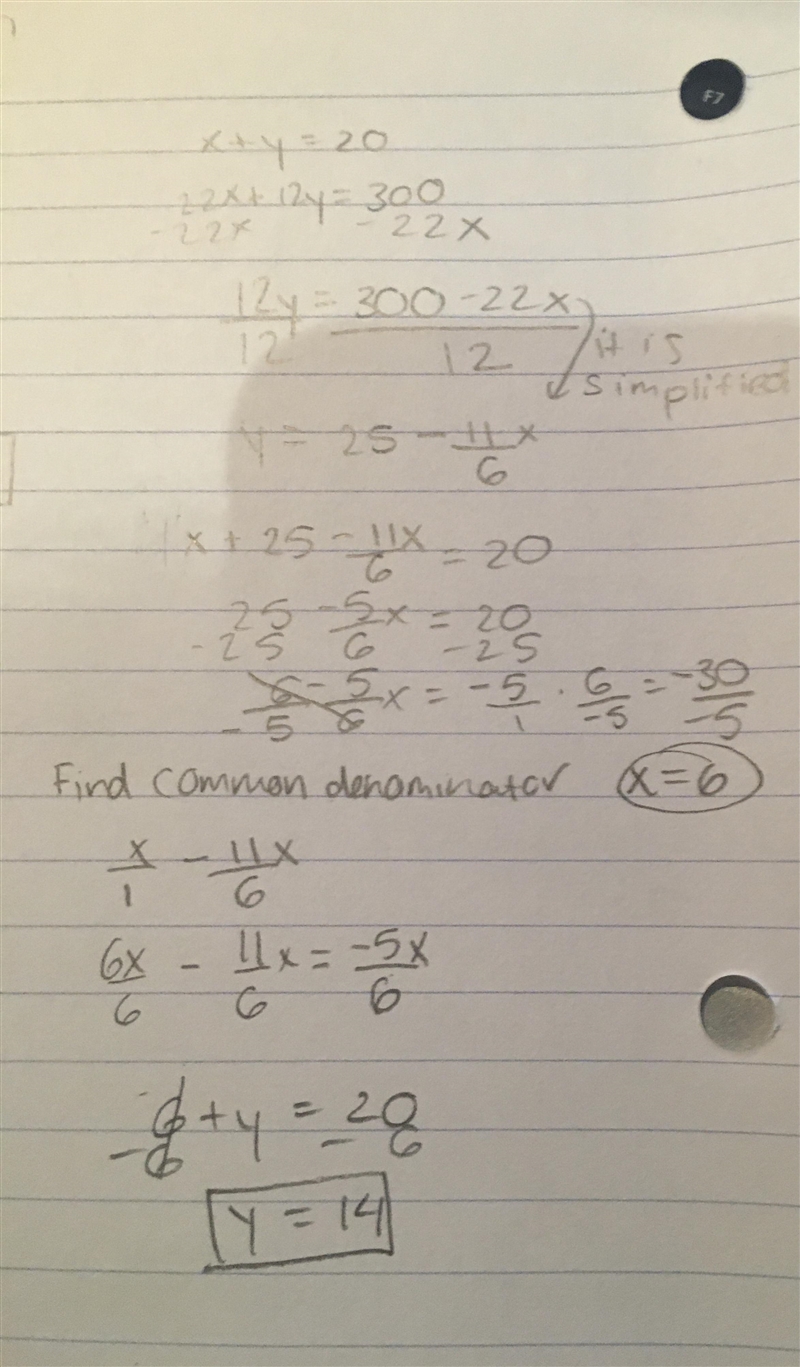 F7
x + y = 20
22x + 12y = 300
-22x -22x
12y/12 = 300 - 22x/12 it is
simplified
y = 25 - 11/6 x
1x + 25 - 11x/6 = 20
25 - 5/6 x = 20
-25 -25
6/-5 · -5/6 x = -5/1 · 6/-5 = -30/-5
Find common denominator x = 6
x/1 - 11x/6
6x/6 - 11/6 x = -5x/6
6 + y = 20
-6 -6
y = 14